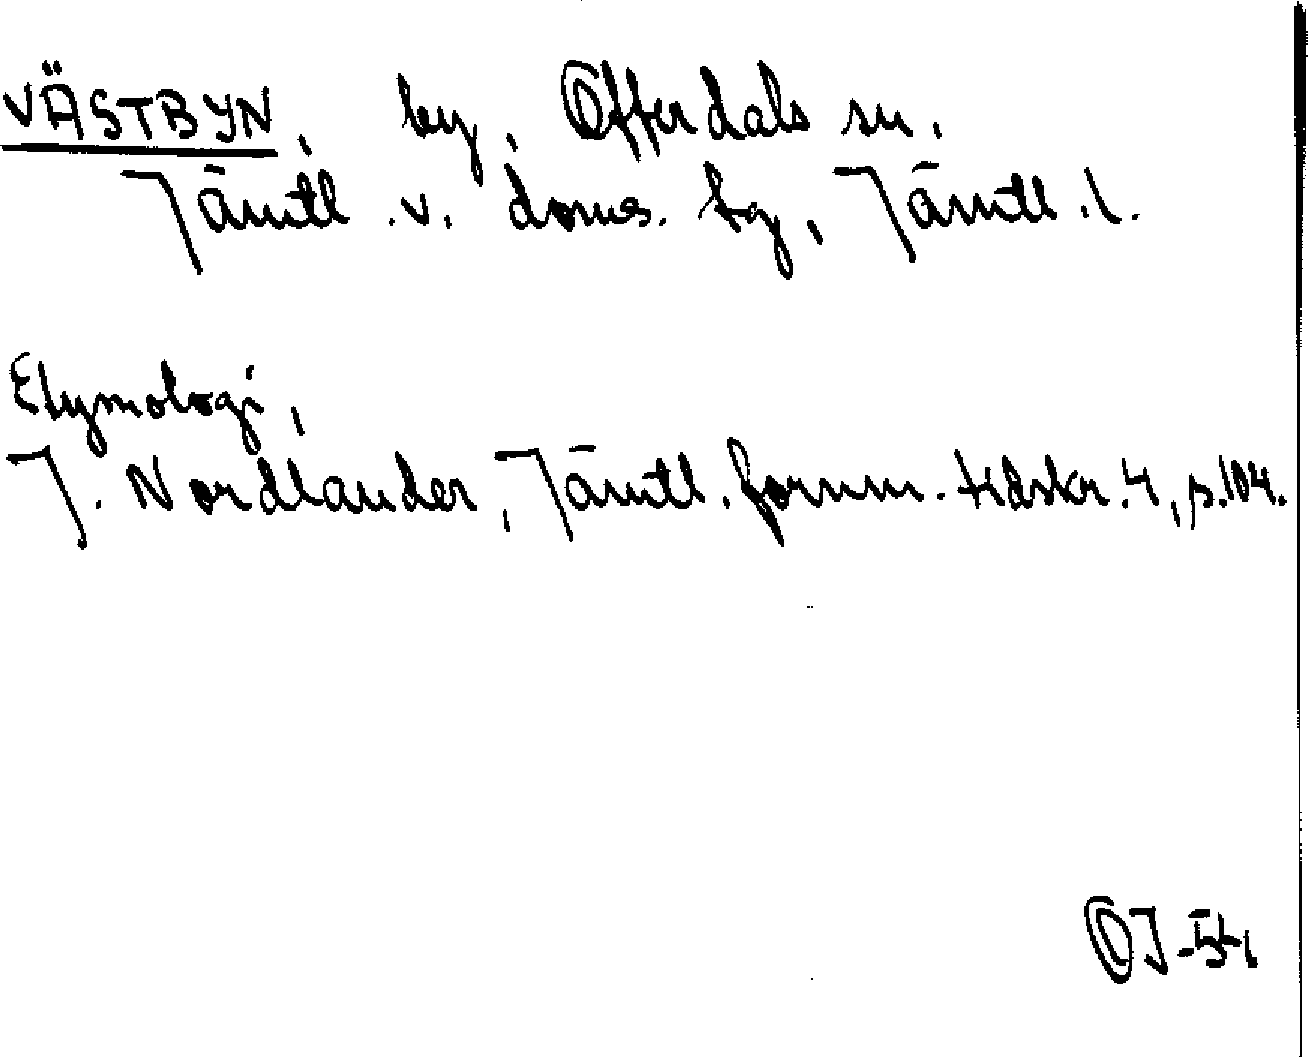 VÄSTBYN, by, Offerdals sn,
Jämtl. v. doms. tg, Jämtl. l.
Etymologi,
J. Nordlander, Jämtl. fornm. tidskr. 4, s. 104.
OJ-54